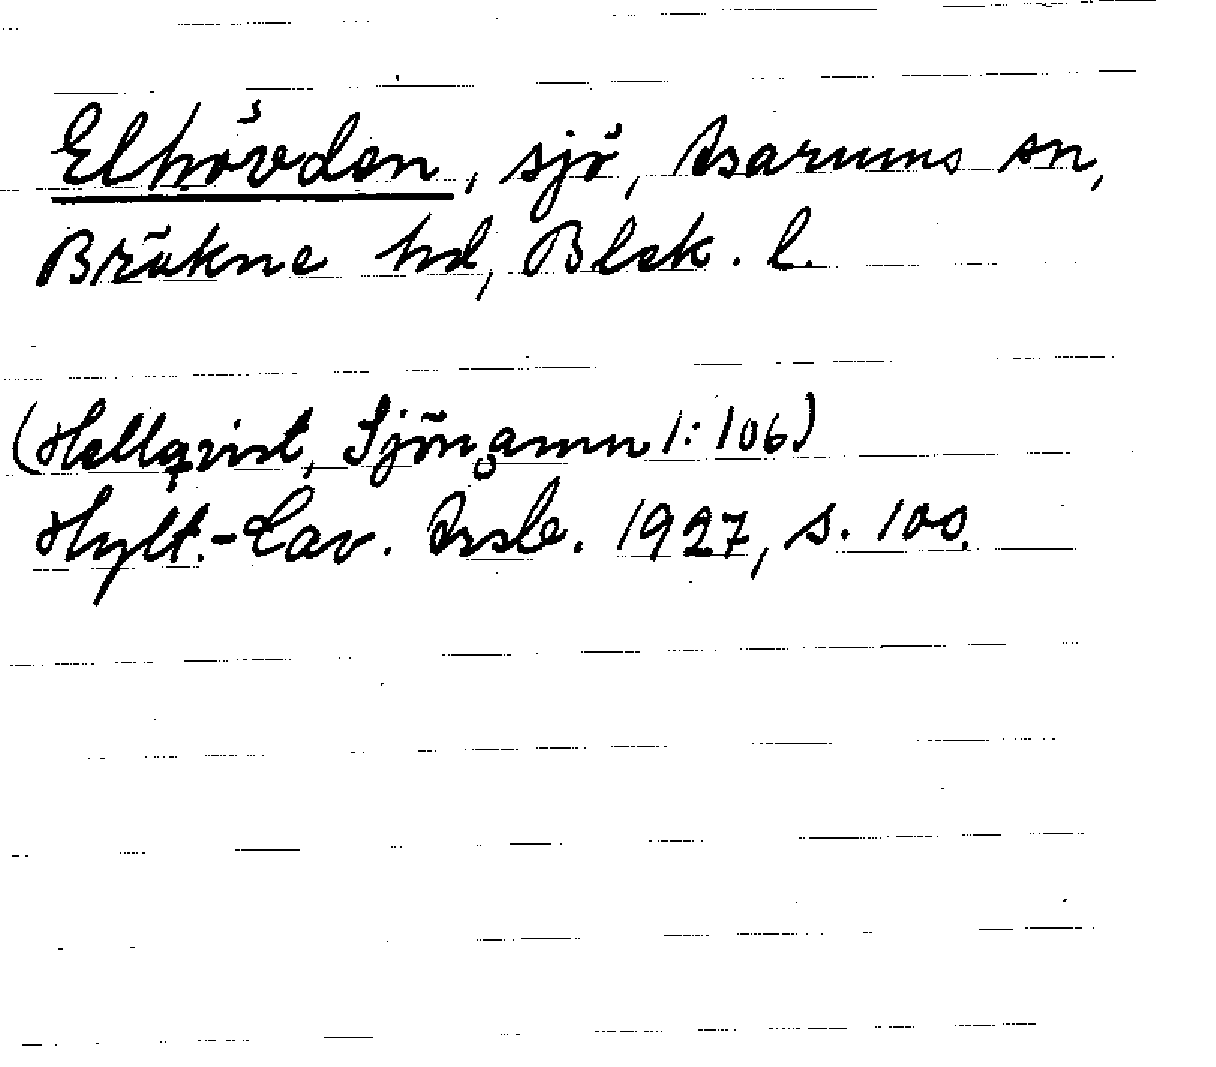 Elhövden, sjö, Asarums sn,
Bräkne hd, Blek. l.
(Hellqvist, Sjönamn 1:106)
Hylt.-Cav. Årsb. 1927, s. 100.